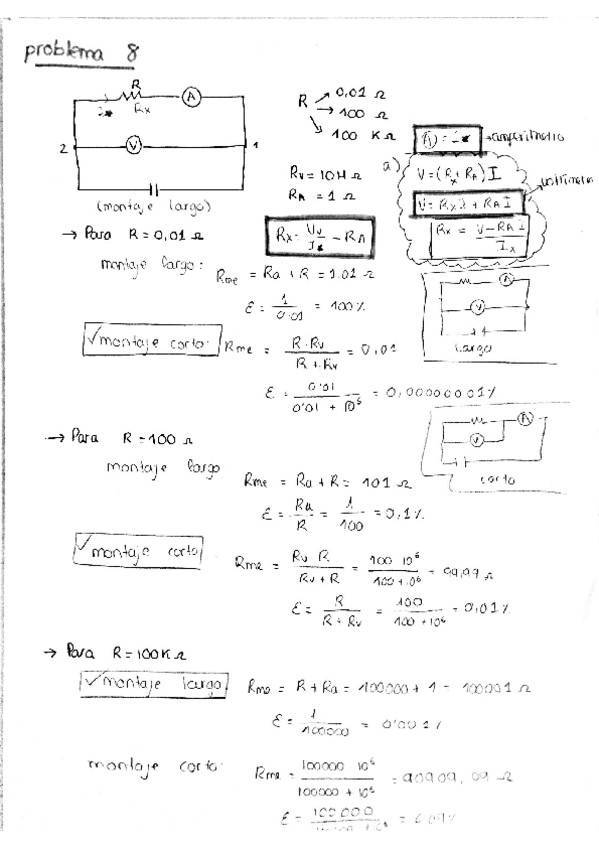 problema 8
R
A
Rx
V
2
1
(montaje largo)
R → 0,01 Ω
→ 100 Ω
→ 100 KΩ
Rv = 10 M Ω
RA = 1 Ω
→ amperímetro
a)
V = (Rx + RA) I
V = Rx I + RA I
→ voltímetro
Rx = V - RA I / Ix
→ Para R = 0,01 Ω
Rx = Vv / Ix - RA
montaje largo: Rme = Ra + R = 1,01 Ω
ε = 1 / 0,01 = 100 %
A
V
Largo
✓ montaje corto: Rme = R · Rv / R + Rv = 0,01
ε = 0'01 / 0'01 + 10⁶ = 0,00000001%
A
V
corto
→ Para R = 100 Ω
montaje largo Rme = Ra + R = 101 Ω
ε = Ra / R = 1 / 100 = 0,1 %
✓ montaje corto Rme = Rv R / Rv + R = 100 10⁶ / 100 + 10⁶ = 99,99 Ω
ε = R / R + Rv = 100 / 100 + 10⁶ = 0,01 %
→ Para R = 100 K Ω
✓ montaje largo Rme = R + Ra = 100000 + 1 = 100001 Ω
ε = 1 / 100000 = 0'001 %
montaje corto: Rme = 100000 10⁶ / 100000 + 10⁶ = 90909,09 Ω
ε = 100000